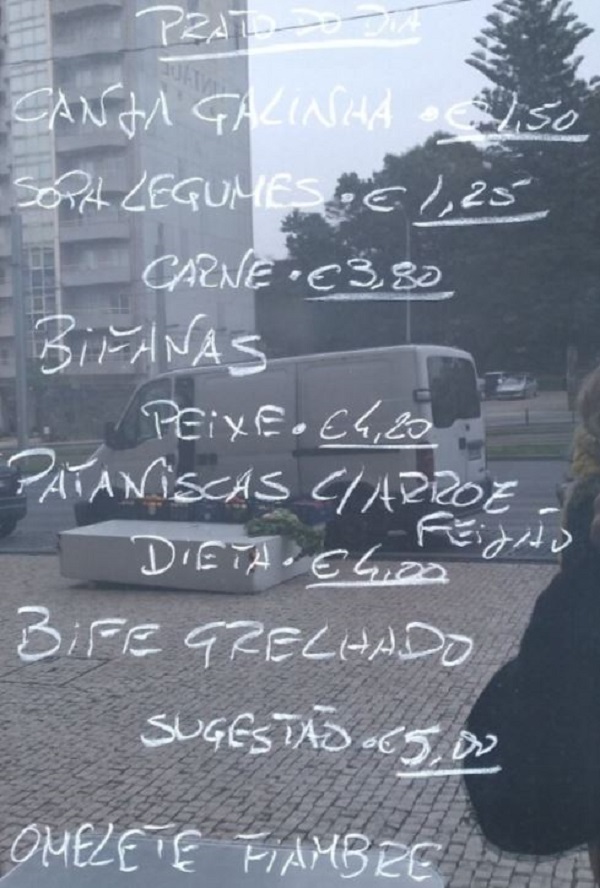 PRATO DO DIA
CANJA GALINHA • € 1,50
SOPA LEGUMES • € 1,25
CARNE • €3,80
BIFANAS
PEIXE • €4,20
PATANISCAS C/ARROZ
FEIJÃO
DIETA • €4,00
BIFE GRELHADO
SUGESTÃO • €5,00
OMELETE FIAMBRE